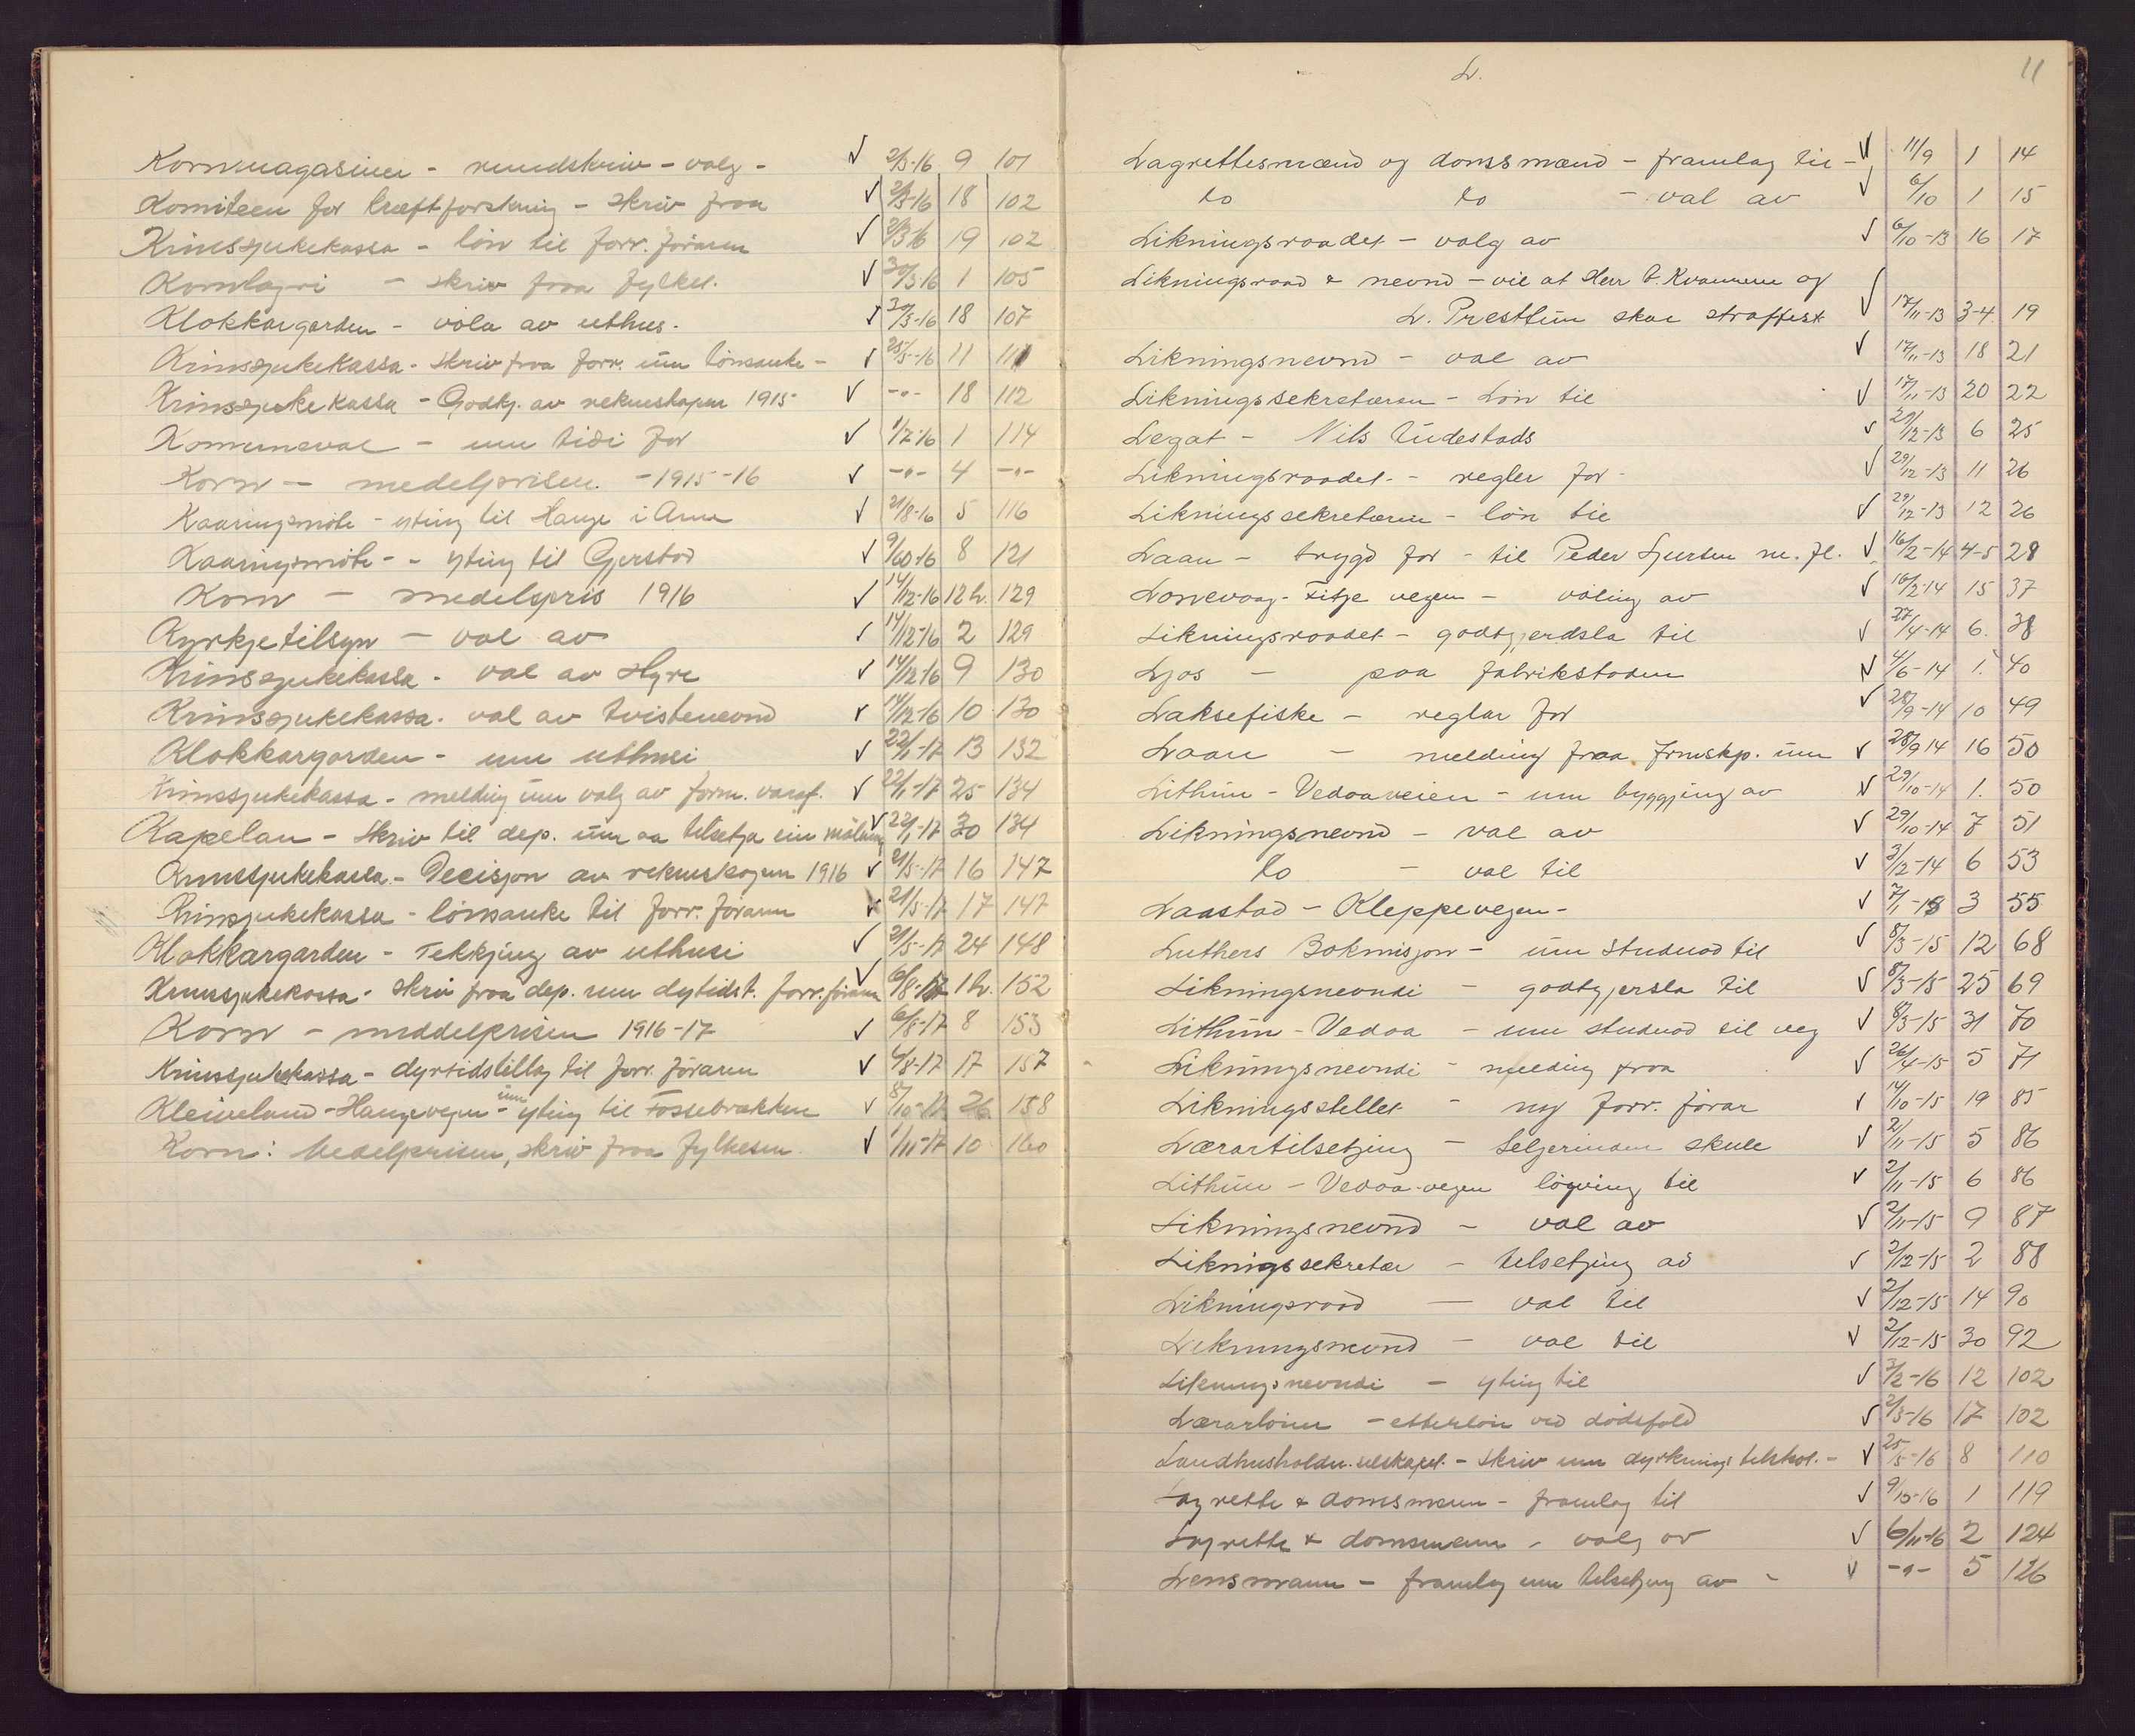 Kornmagasinen - rundskriv - valg - √ 2/3-16 9 101
Komiteen for kreftforskning - skriv fraa √ 2/3-16 18 102
Krinssjukekassa - lön til forr. föraren √ 2/3-16 19 102
Kornlagri - skriv fraa fylkes. √ 30/3-16 1 105
Klokkargarden - völa av uthus. √ 30/3-16 18 107
Krinssjukekassa - skriv fraa forr. um lönsauke - √ 25/5-16 11 111
Krinssjukekassa - Godkj. av rekneskapen 1915 √ -"- 18 112
Komuneval - um tidi for √ 1/7-16 1 114
Korn - medelprisen - 1915-16 √ -"- 4 -"-
Kaaringsmöte - yting til Hauge i Arna √ 21/8-16 5 116
Kaaringsmöte - - yting til Gjerstad √ 9/10-16 8 121
Korn - medelspris 1916 √ 14/12-16 12 h. 129
Kyrkjetilsyn - val av √ 14/12-16 2 129
Krinssjukekassa - val av styre √ 14/12-16 9 130
Krinssjukekassa. val av tvistenevnd √ 14/12-16 10 130
Klokkargarden - um uthusi √ 22/1-17 13 132
Krinssjukekassa - melding um valg av form. varaf. √ 22/1-17 25 134
Kapelan - Skriv til dep. um aa tilsetja ein √ 22/1-17 30 134
Krinssjukekassa - Decisjon av rekneskapen 1916 √ 21/5-17 16 147
Krinssjukekassa - lönsauke til forr. föraren √ 21/5-17 17 147
Klokkargarden - Tekkjing av uthusi √ 21/5-17 24 148
Krinssjukekassa - skriv fraa dep. um dyrtidst. forr. föraren √ 6/8-17 1 h. 152
Korn - middelprisen 1916-17 √ 6/8-17 8 153
Krinssjukekassa - dyrtidstillag til forr. föraren √ 6/8-17 17 157
Kleiveland-Haugevegen - um yting til Fossebrekken √ 8/10-17 26 158
Korn: Medelprisen, skriv fraa fylkesm. √ 1/11-17 10 160
L. 11
Lagrettesmænd og domsmænd - framlag til - √ 11/9 1 14
do do - val av √ 6/10 1 15
Likningsraadet - valg av √ 6/10-13 16 17
Likningsraad & nevnd - vil at Herr Kvamme og
L. Presthun skal straffest √ 17/11-13 3-4 19
Likningsnevnd - val av √ 17/11-13 18 21
Likningssekretæren - Lön til √ 17/11-13 20 22
Legat - Nils Tudestads √ 29/12-13 6 25
Likningsraadet - - regler for - √ 29/12-13 11 26
Likningssekretæren - lön til √ 29/12-13 12 26
Laan - trygd for - til Peder Sjursen m. fl. √ 16/2-14 4-5 28
Lonevaag - Fitje vegen - völing av √ 16/2-14 15 37
Likningsraadet - godtgjerdsla til √ 27/4-14 6. 38
Ljos - paa fabrikstaden √ 4/6-14 1. 40
Laksefiske - reglar for √ 28/9-14 10 49
Laan - melding fraa frmskp. um √ 28/9 14 16 50
Lithun - Vedaaveien - um byggjing av √ 29/10-14 1. 50
Likningsnevnd - val av √ 29/10-14 7 51
do - val til √ 3/12-14 6 53
Laastad - Kleppevegen - √ 7/1-15 3 55
Luthers Bokmisjon - um studnad til √ 8/3-15 12 68
Likningsnevndi - godtgjersla til √ 8/3-15 25 69
Lithun - Vedaa - um studnad til veg √ 8/3-15 31 70
Likningsnevndi - melding fraa √ 26/4-15 5 71
Likningsstellet - ny forr. förar √ 14/10-15 19 85
Lærartilsetjing - Seljerinden skule √ 2/11-15 5 86
Lithun - Vedaa-vegen löyving til √ 2/11-15 6 86
Likningsnevnd - val av √ 2/11-15 9 87
Likningssekretær - tilsetjing av √ 2/12-15 2 88
Likningsraad - val til √ 2/12-15 14 90
Likningsnevnd - val til √ 2/12-15 30 92
Likningsnevndi - yting til √ 2/3-16 12 102
Lærarlöner - etterlön ved dödsfald √ 2/3-16 17 102
Landhusholdn.selskapet. - Skriv um dyrknings tilskot. - √ 25/5-16 8 110
Lagrette & domsmenn - framlag til √ 9/10-16 1 119
Lagrette & domsmenn - valg av √ 6/11-16 2 124
Lensmann - framlag um tilsetjing av - √ -"- 5 126